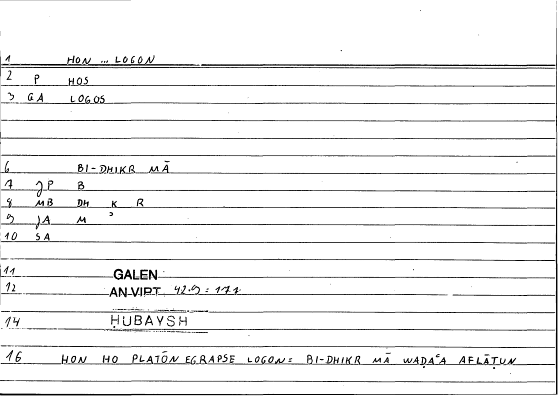 1 HON ... LOGON
2 P HOS
3 GA LOGOS
6 BI-DHIKR MĀ
7 JP B
8 MB DH K R
9 JA M ʾ
10 SA
11 GALEN
12 AN VIRT 42.9 = 171
14 ḤUBAYSH
16 HON HO PLATŌN EGRAPSE LOGON = BI-DHIKR MĀ WAḌAʿA AFLĀṬUN